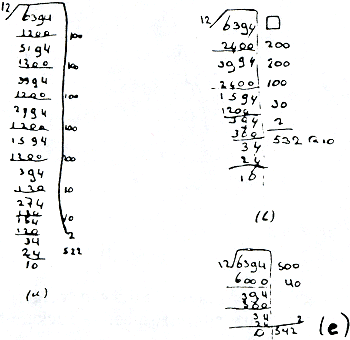 12 6394
1200 100
5194
1200 100
3994
1200 100
2794
1200 100
1594
1200 100
394
120 10
274
120
154 10
120 2
34
24 532
10
(a)
12 6394 □
2400 200
3994 200
2400 100
1594 30
1200 2
394
360 532
34
24
10
(b)
12 6394 500
6000 40
394
360
34 2
24
542
(e)